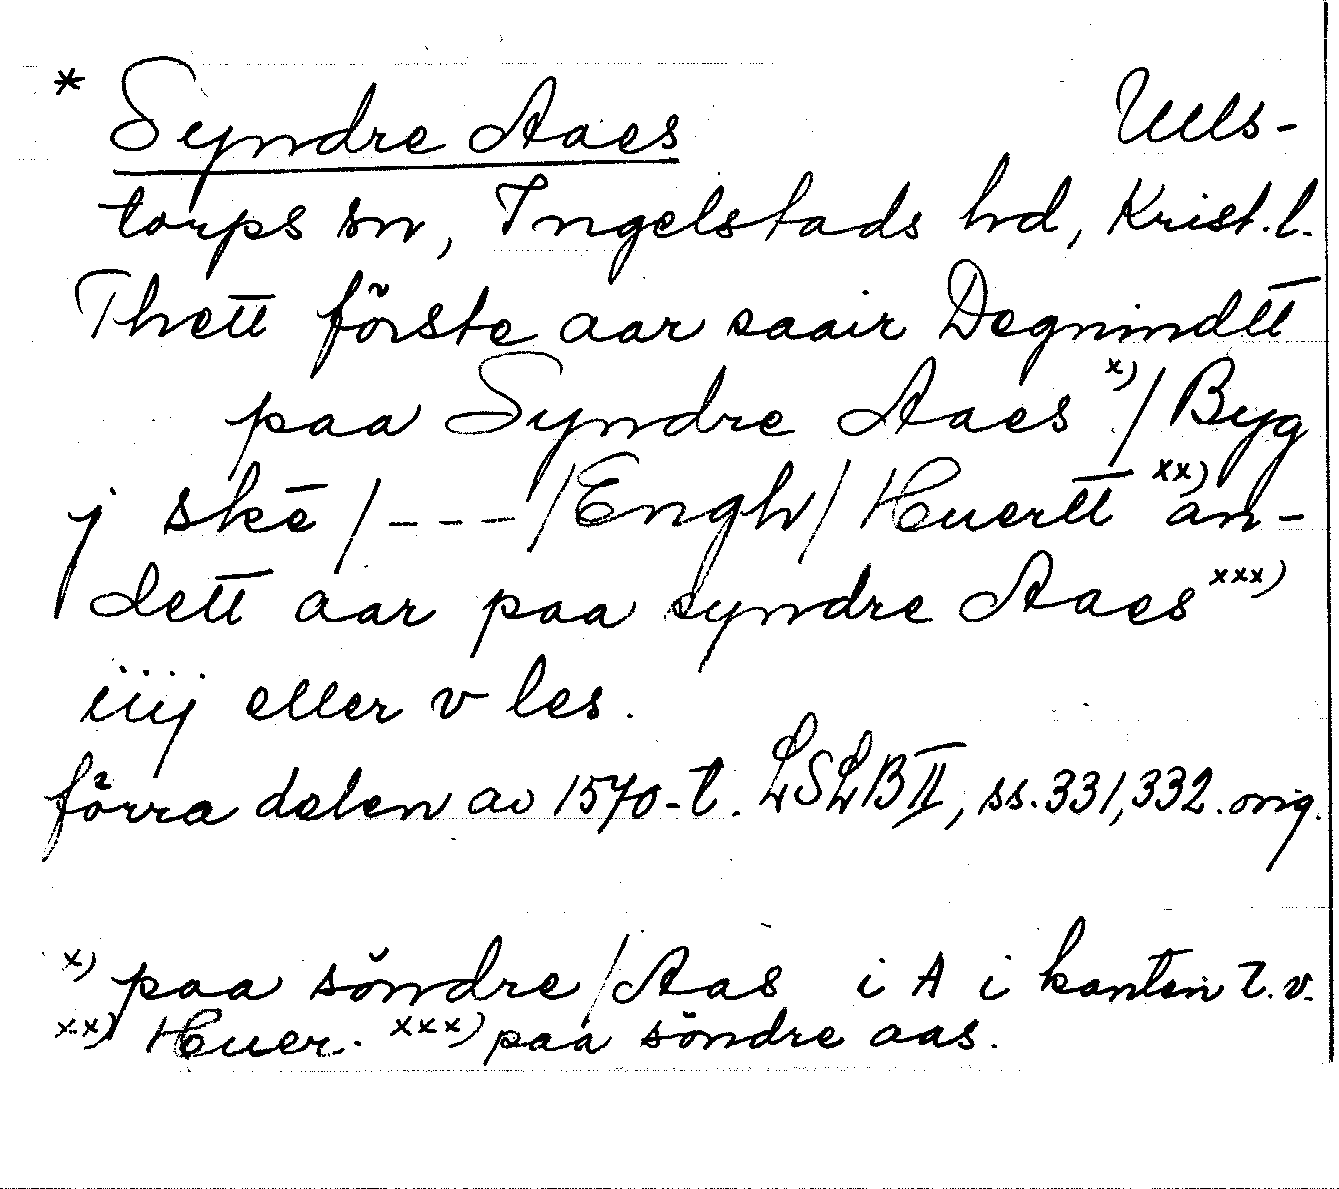 * Syndre Aaes Ulls-
torps sn, Ingelstads hd, Krist.l.
Thett förste aar saair Degnindtt
paa Syndre Aaes x) / Byg
j skē / - - - / Engh / Huertt xx) an-
dett aar paa syndre Aaes xxx)
iiij eller v les.
förra delen av 1570-t. LSLB II, ss. 331, 332. orig.
x) paa söndre / Aas i A i kanten t.v.
xx) Huer. xxx) paa söndre aas.